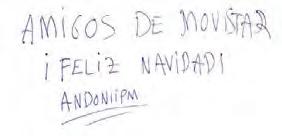 AMIGOS DE MOVISTAR
¡ FELIZ NAVIDAD!
ANDONIIPM